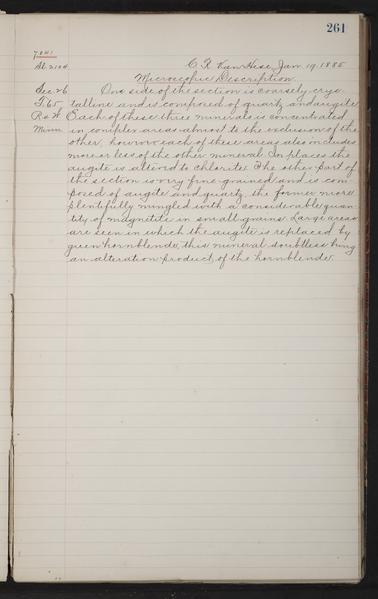 261
7041
Sl. 2104
C. R. Van Hise, Jan. 19, 1885
Microscopic Description.
Sec. 26
T. 65
R. 4 W
Minn.
One side of the section is coarsely crys-
talline and is composed of quartz and augite.
Each of these three minerals is concentrated
in complex areas almost to the exclusion of the
other, however each of these areas also includes
more or less of the other mineral. In places the
augite is altered to chlorite. The other part of
the section is very fine-grained and is com-
posed of augite and quartz, the former more
plentifully mingled with a considerable quan-
tity of magnetite in small grains. Large areas
are seen in which the augite is replaced by
green hornblende, this mineral doubtless being
an alteration product of the hornblende.